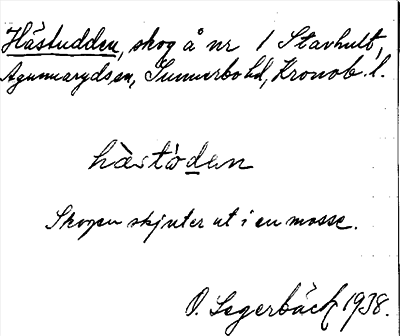 Hästudden, skog å nr 1 Stavhult,
Agunnaryds sn, Sunnerbo hd, Kronob. l.
hàstò́den
Skogen skjuter ut i en mosse.
O. Segerbäck 1938.